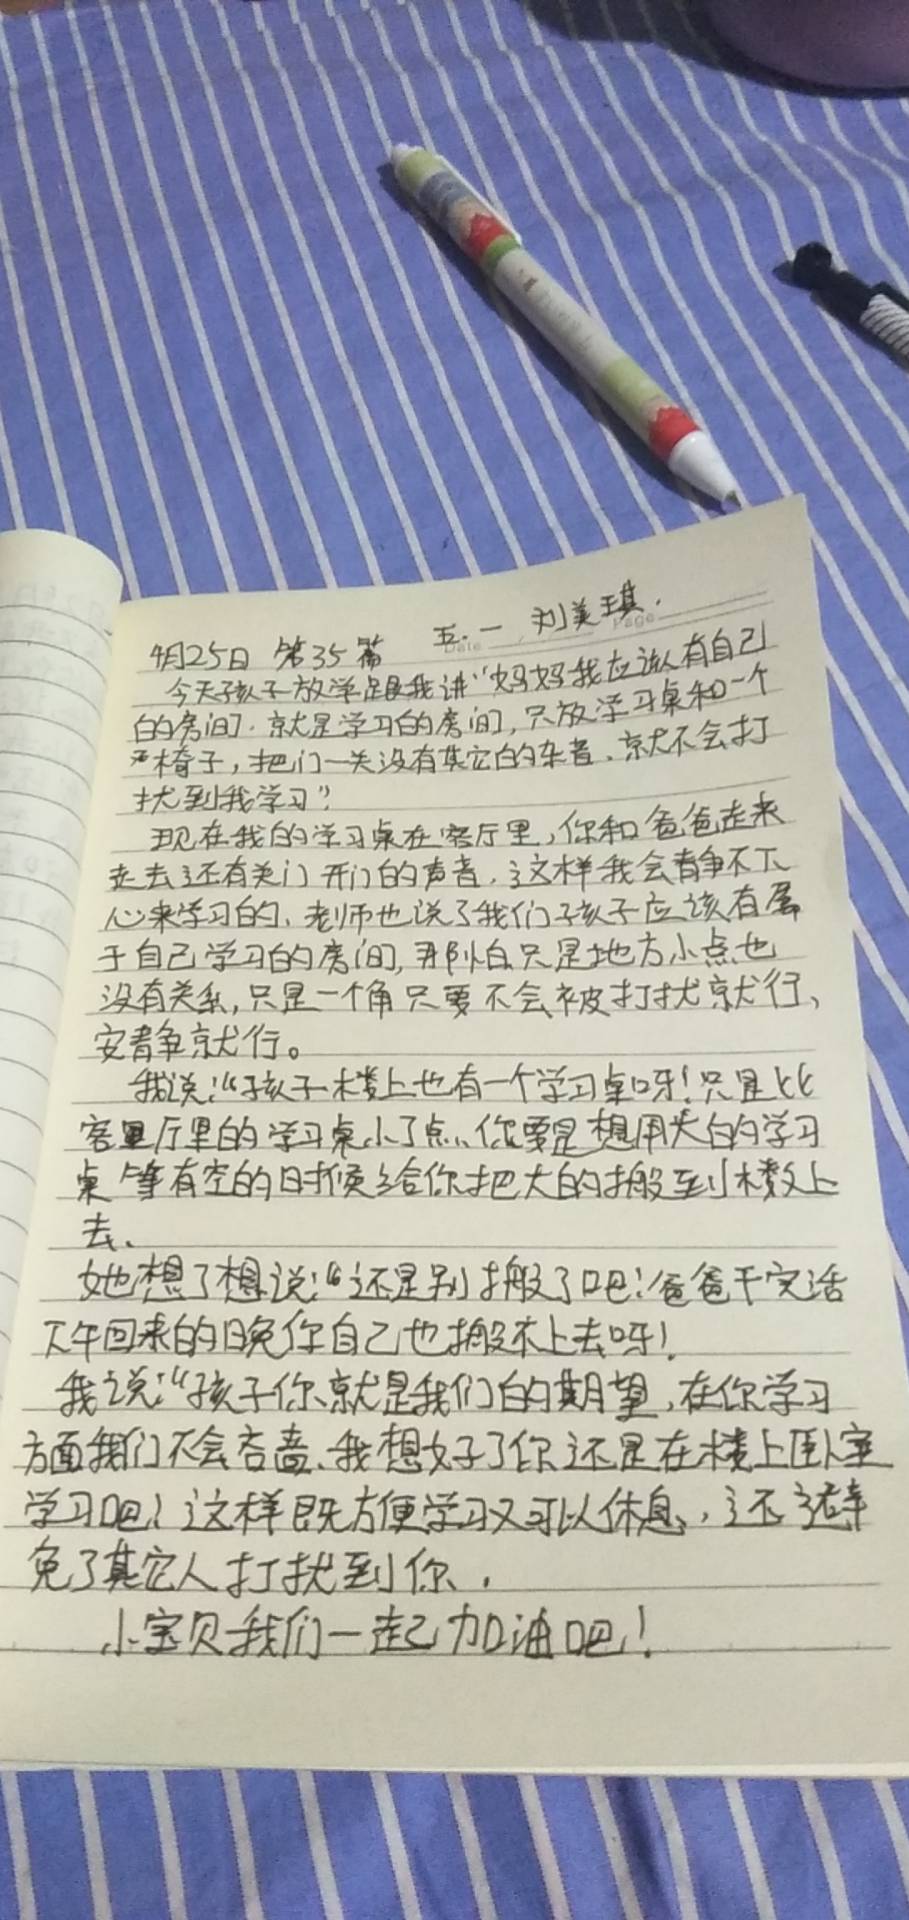 五.一 刘美琪.
Date Page
4月25日 第35篇
今天孩子放学跟我讲“妈妈我应该有自己
的房间.就是学习的房间,只放学习桌和一个
椅子,把门一关没有其它的杂音、就不会打
扰到我学习”
现在我的学习桌在客厅里,你和爸爸走来
走去还有关门开门的声音、这样我会静不下
心来学习的、老师也说了我们孩子应该有属
于自己学习的房间,那怕只是地方小点也
没有关系,只是一个角只要不会被打扰就行、
安静就行。
我说:“孩子楼上也有一个学习桌呀!只是比
客厅里的学习桌小了点、你要是想用大的学习
桌 等有空的时候给你把大的搬到楼上
去、
她想了想说:“还是别搬了吧!爸爸干完活
下午回来的晚你自己也搬不上去呀!
我说:“孩子你就是我们的期望,在你学习
方面我们不会吝啬、我想好了你还是在楼上卧室
学习吧!这样既方便学习又可以休息,还避
免了其它人打扰到你、
小宝贝我们一起加油吧!